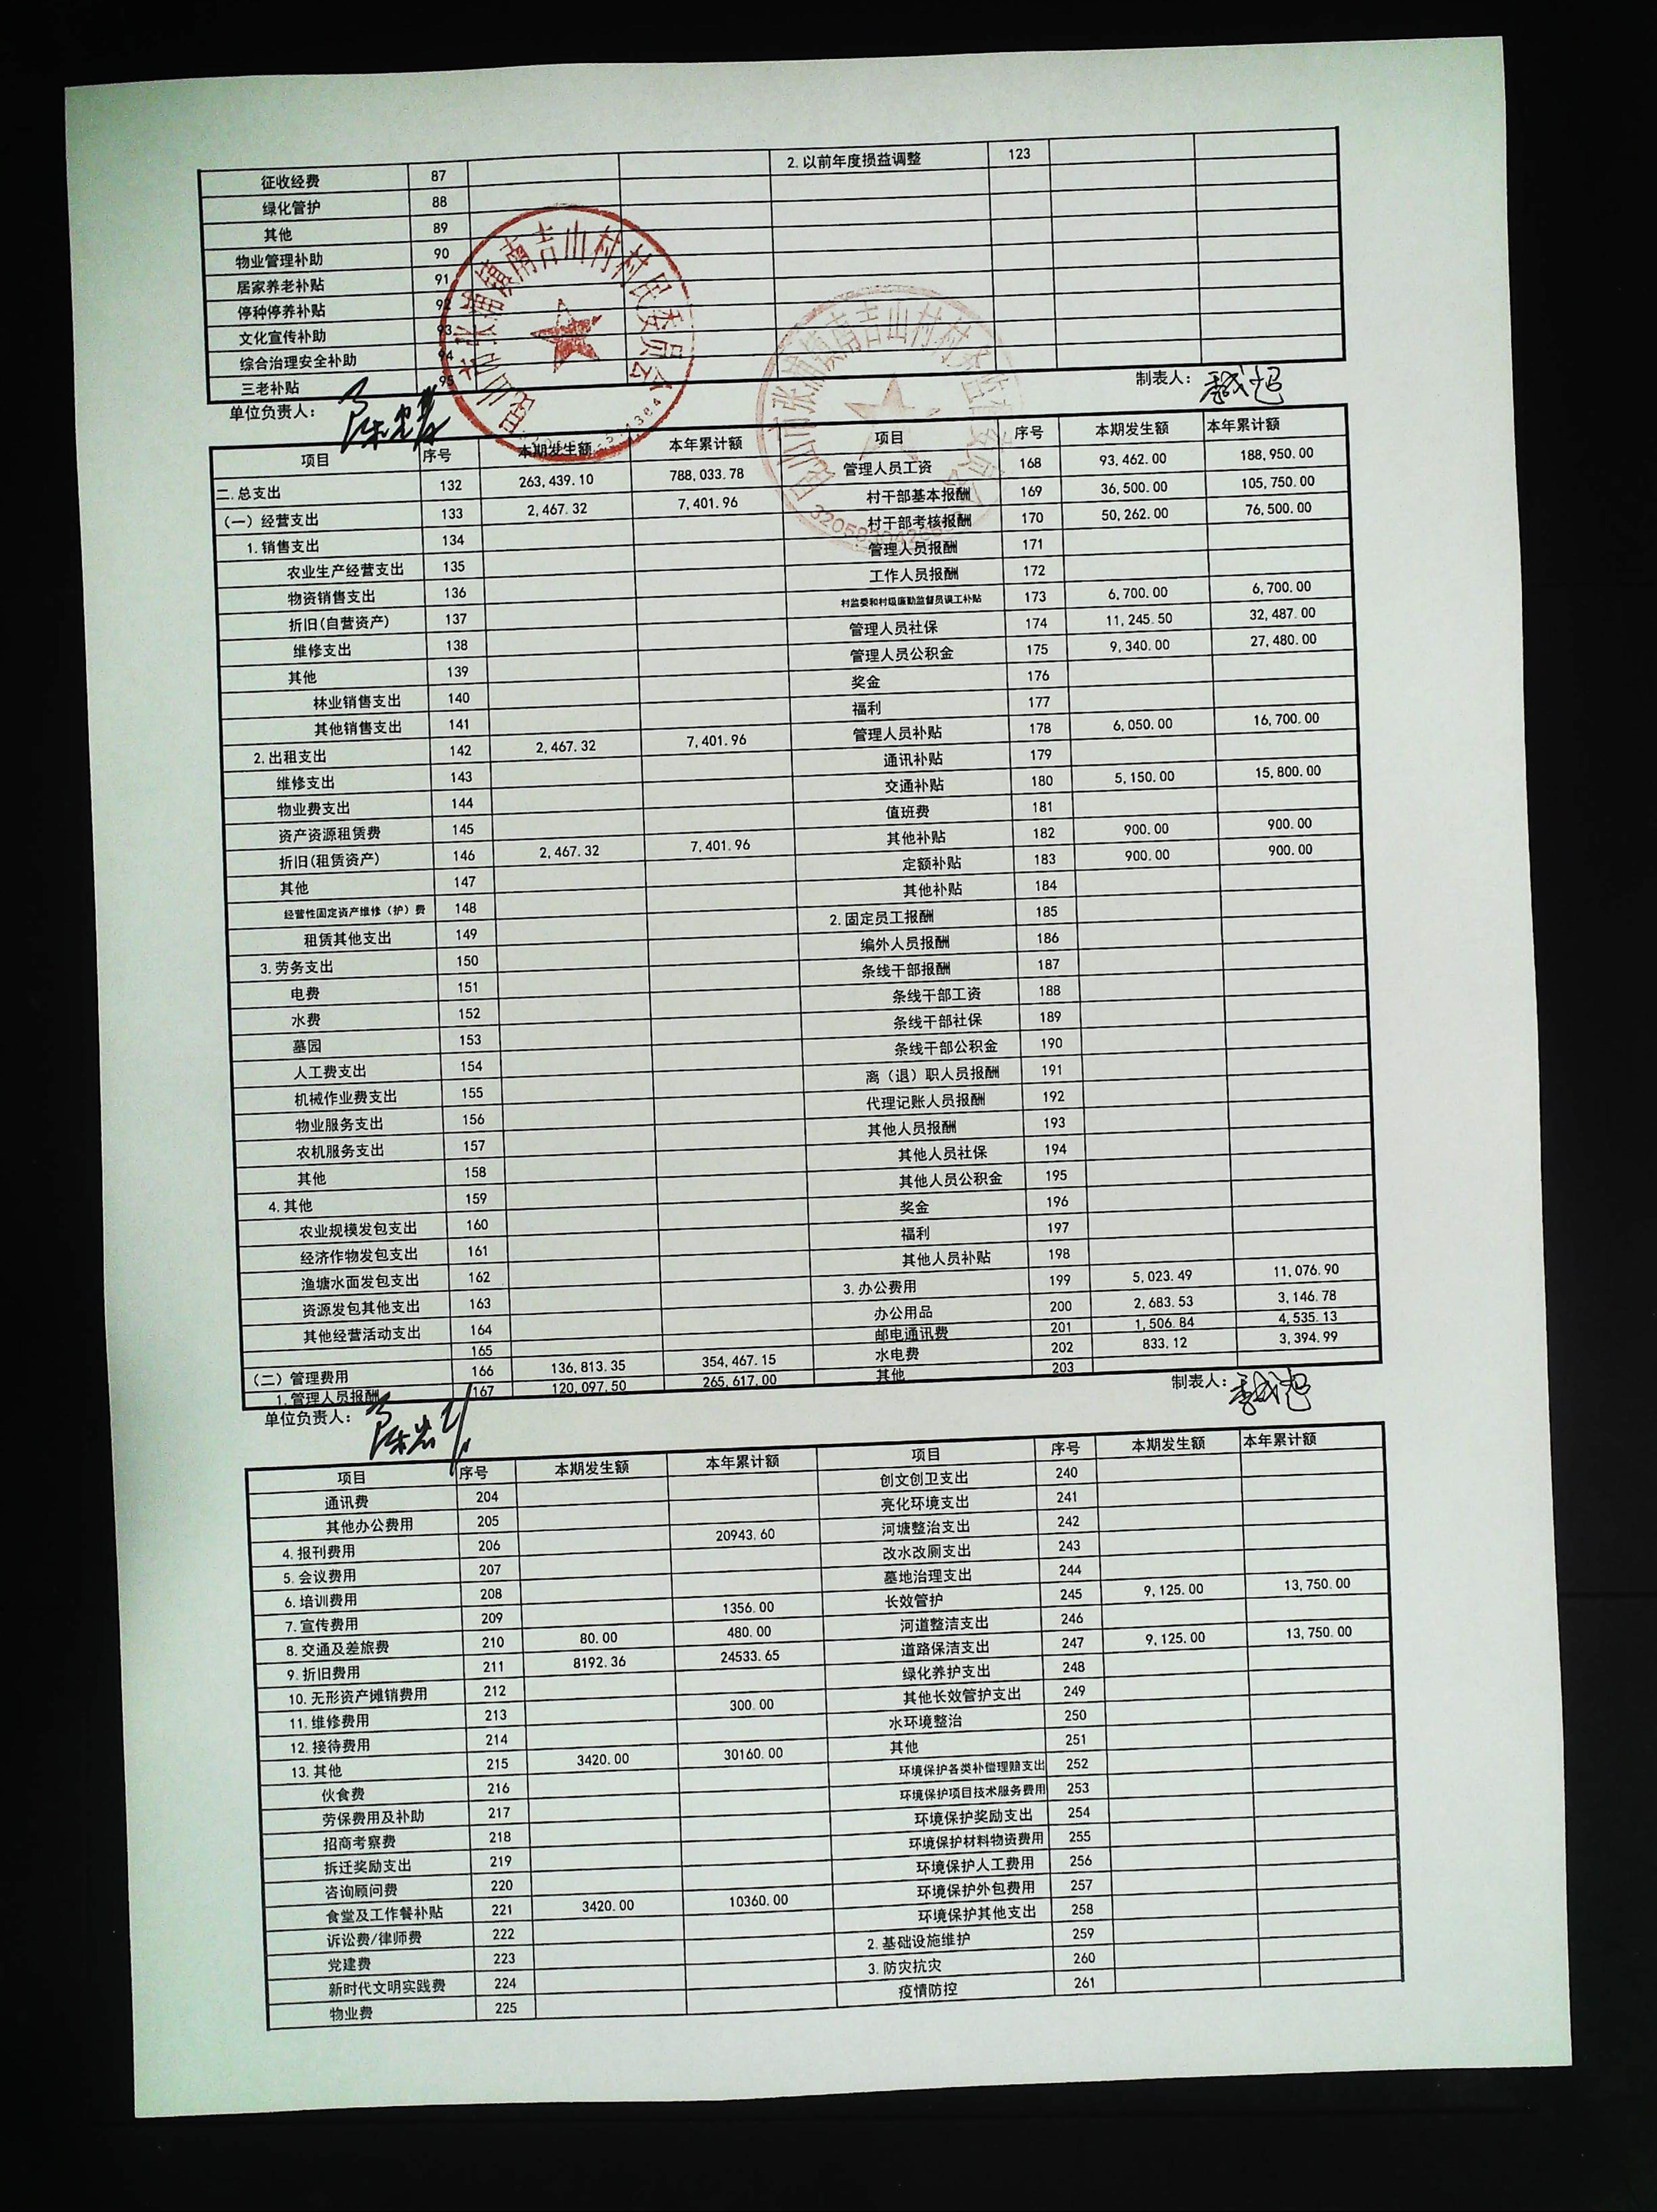 征收经费 87 2.以前年度损益调整 123
绿化管护 88
其他 89
物业管理补助 90
居家养老补贴 91
停种停养补贴 92
文化宣传补助 93
综合治理安全补助 94
三老补贴 95
昆山市张浦镇南吉山村村民委员会
昆山市张浦镇南吉山村村务监督委员会
单位负责人： 制表人：
项目 序号 本期发生额 本年累计额 项目 序号 本期发生额 本年累计额
二.总支出 132 263,439.10 788,033.78 管理人员工资 168 93,462.00 188,950.00
（一）经营支出 133 2,467.32 7,401.96 村干部基本报酬 169 36,500.00 105,750.00
1.销售支出 134 村干部考核报酬 170 50,262.00 76,500.00
农业生产经营支出 135 管理人员报酬 171
物资销售支出 136 工作人员报酬 172
折旧(自营资产) 137 村监委和村级廉勤监督员误工补贴 173 6,700.00 6,700.00
维修支出 138 管理人员社保 174 11,245.50 32,487.00
其他 139 管理人员公积金 175 9,340.00 27,480.00
林业销售支出 140 奖金 176
其他销售支出 141 福利 177
2.出租支出 142 2,467.32 7,401.96 管理人员补贴 178 6,050.00 16,700.00
维修支出 143 通讯补贴 179
物业费支出 144 交通补贴 180 5,150.00 15,800.00
资产资源租赁费 145 值班费 181
折旧(租赁资产) 146 2,467.32 7,401.96 其他补贴 182 900.00 900.00
其他 147 定额补贴 183 900.00 900.00
经营性固定资产维修（护）费 148 其他补贴 184
租赁其他支出 149 2.固定员工报酬 185
3.劳务支出 150 编外人员报酬 186
电费 151 条线干部报酬 187
水费 152 条线干部工资 188
墓园 153 条线干部社保 189
人工费支出 154 条线干部公积金 190
机械作业费支出 155 离（退）职人员报酬 191
物业服务支出 156 代理记账人员报酬 192
农机服务支出 157 其他人员报酬 193
其他 158 其他人员社保 194
4.其他 159 其他人员公积金 195
农业规模发包支出 160 奖金 196
经济作物发包支出 161 福利 197
渔塘水面发包支出 162 其他人员补贴 198
资源发包其他支出 163 3.办公费用 199 5,023.49 11,076.90
其他经营活动支出 164 办公用品 200 2,683.53 3,146.78
165 邮电通讯费 201 1,506.84 4,535.13
（二）管理费用 166 136,813.35 354,467.15 水电费 202 833.12 3,394.99
1.管理人员报酬 167 120,097.50 265,617.00 其他 203
单位负责人： 制表人：
项目 序号 本期发生额 本年累计额 项目 序号 本期发生额 本年累计额
通讯费 204 创文创卫支出 240
其他办公费用 205 亮化环境支出 241
4.报刊费用 206 20943.60 河塘整治支出 242
5.会议费用 207 改水改厕支出 243
6.培训费用 208 墓地治理支出 244
7.宣传费用 209 1356.00 长效管护 245 9,125.00 13,750.00
8.交通及差旅费 210 80.00 480.00 河道整洁支出 246
9.折旧费用 211 8192.36 24533.65 道路保洁支出 247 9,125.00 13,750.00
10.无形资产摊销费用 212 绿化养护支出 248
11.维修费用 213 300.00 其他长效管护支出 249
12.接待费用 214 水环境整治 250
13.其他 215 3420.00 30160.00 其他 251
伙食费 216 环境保护各类补偿理赔支出 252
劳保费用及补助 217 环境保护项目技术服务费用 253
招商考察费 218 环境保护奖励支出 254
拆迁奖励支出 219 环境保护材料物资费用 255
咨询顾问费 220 环境保护人工费用 256
食堂及工作餐补贴 221 3420.00 10360.00 环境保护外包费用 257
诉讼费/律师费 222 环境保护其他支出 258
党建费 223 2.基础设施维护 259
新时代文明实践费 224 3.防灾抗灾 260
物业费 225 疫情防控 261